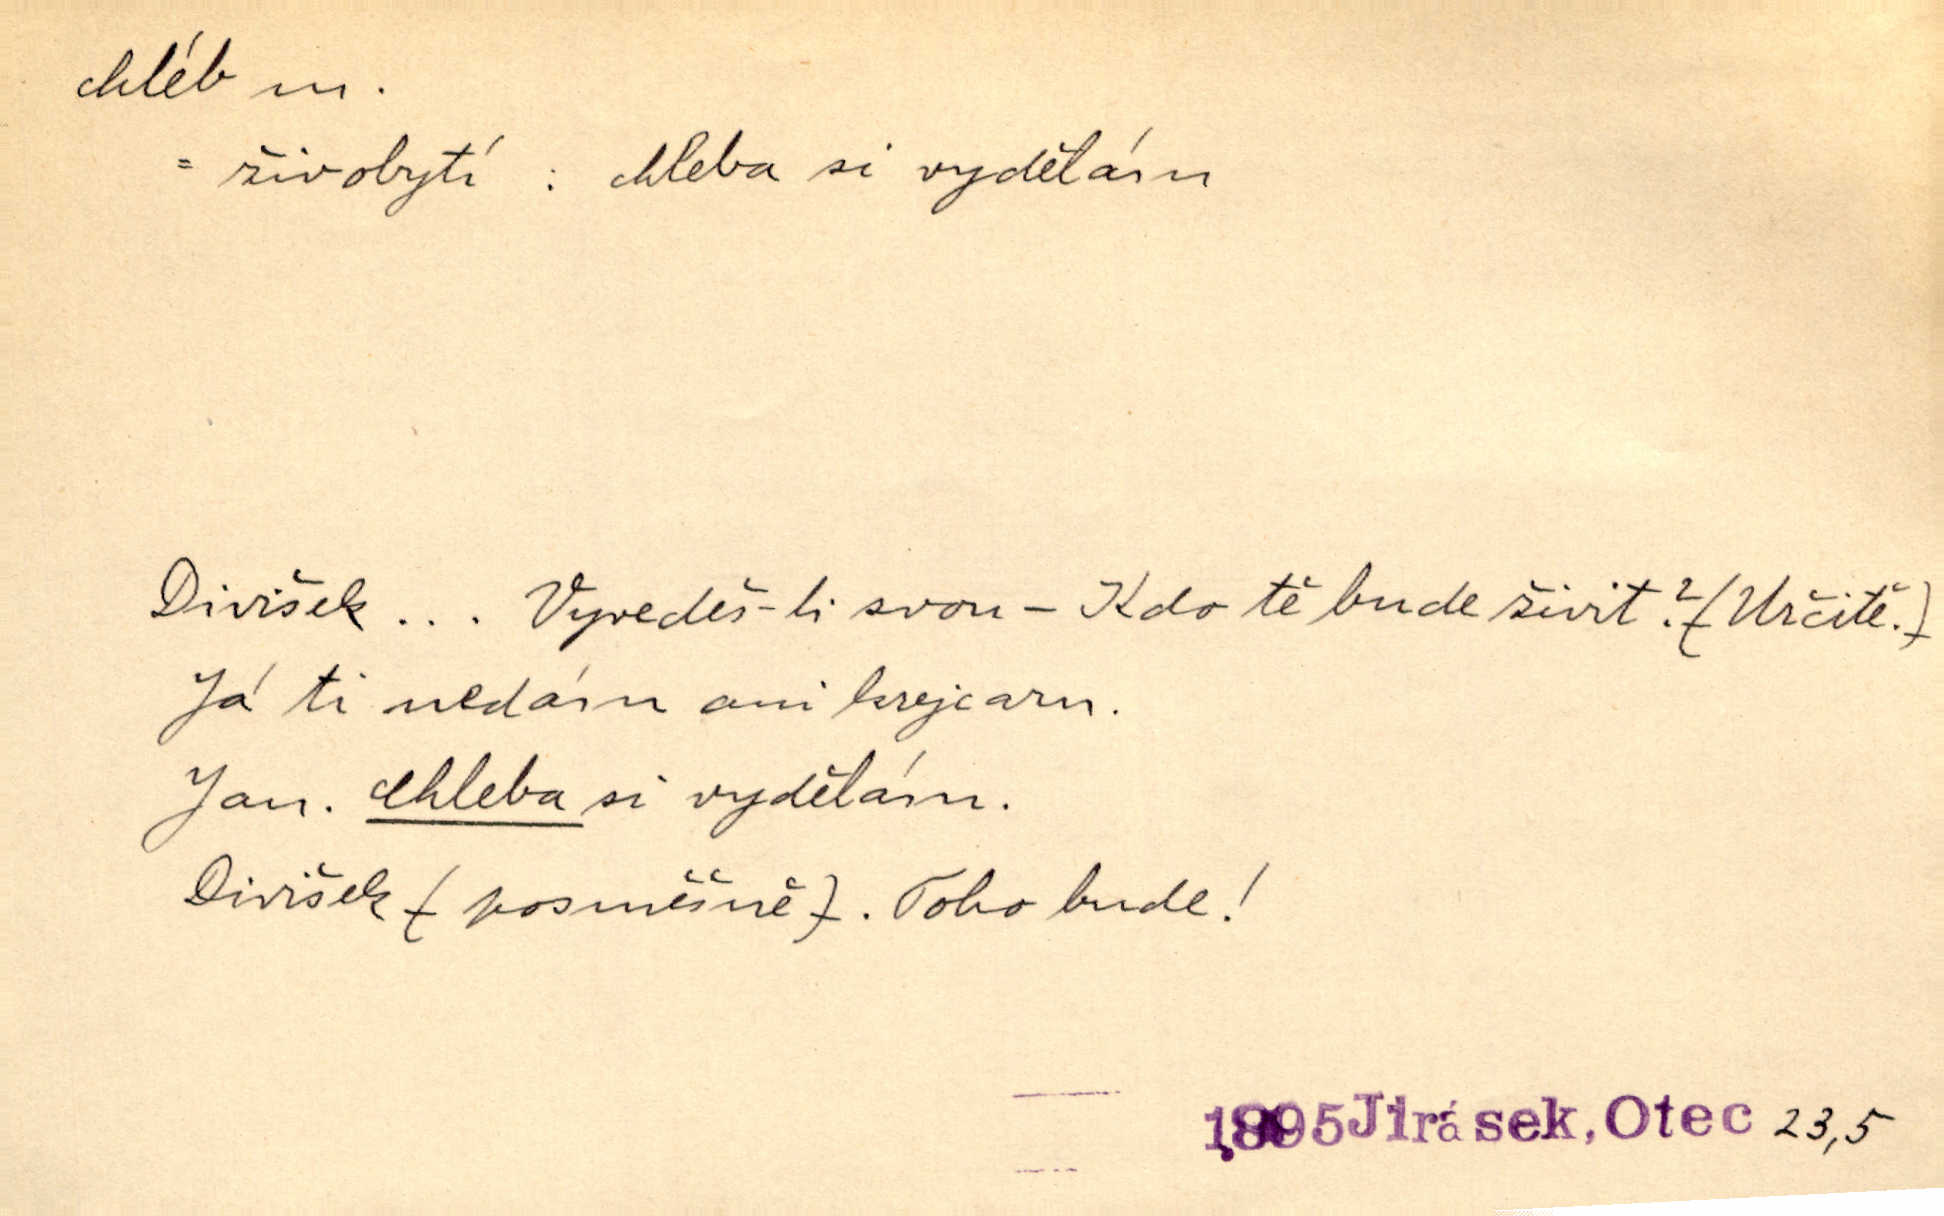 chléb m.
= živobytí : chleba si vydělám
Divišek ... Vyvedeš-li svou – Kdo tě bude živit? (Určitě.)
Já ti nedám ani krejcaru.
Jan. Chleba si vydělám.
Divišek (posměšně). Toho bude!
1895 Jirásek, Otec 23,5